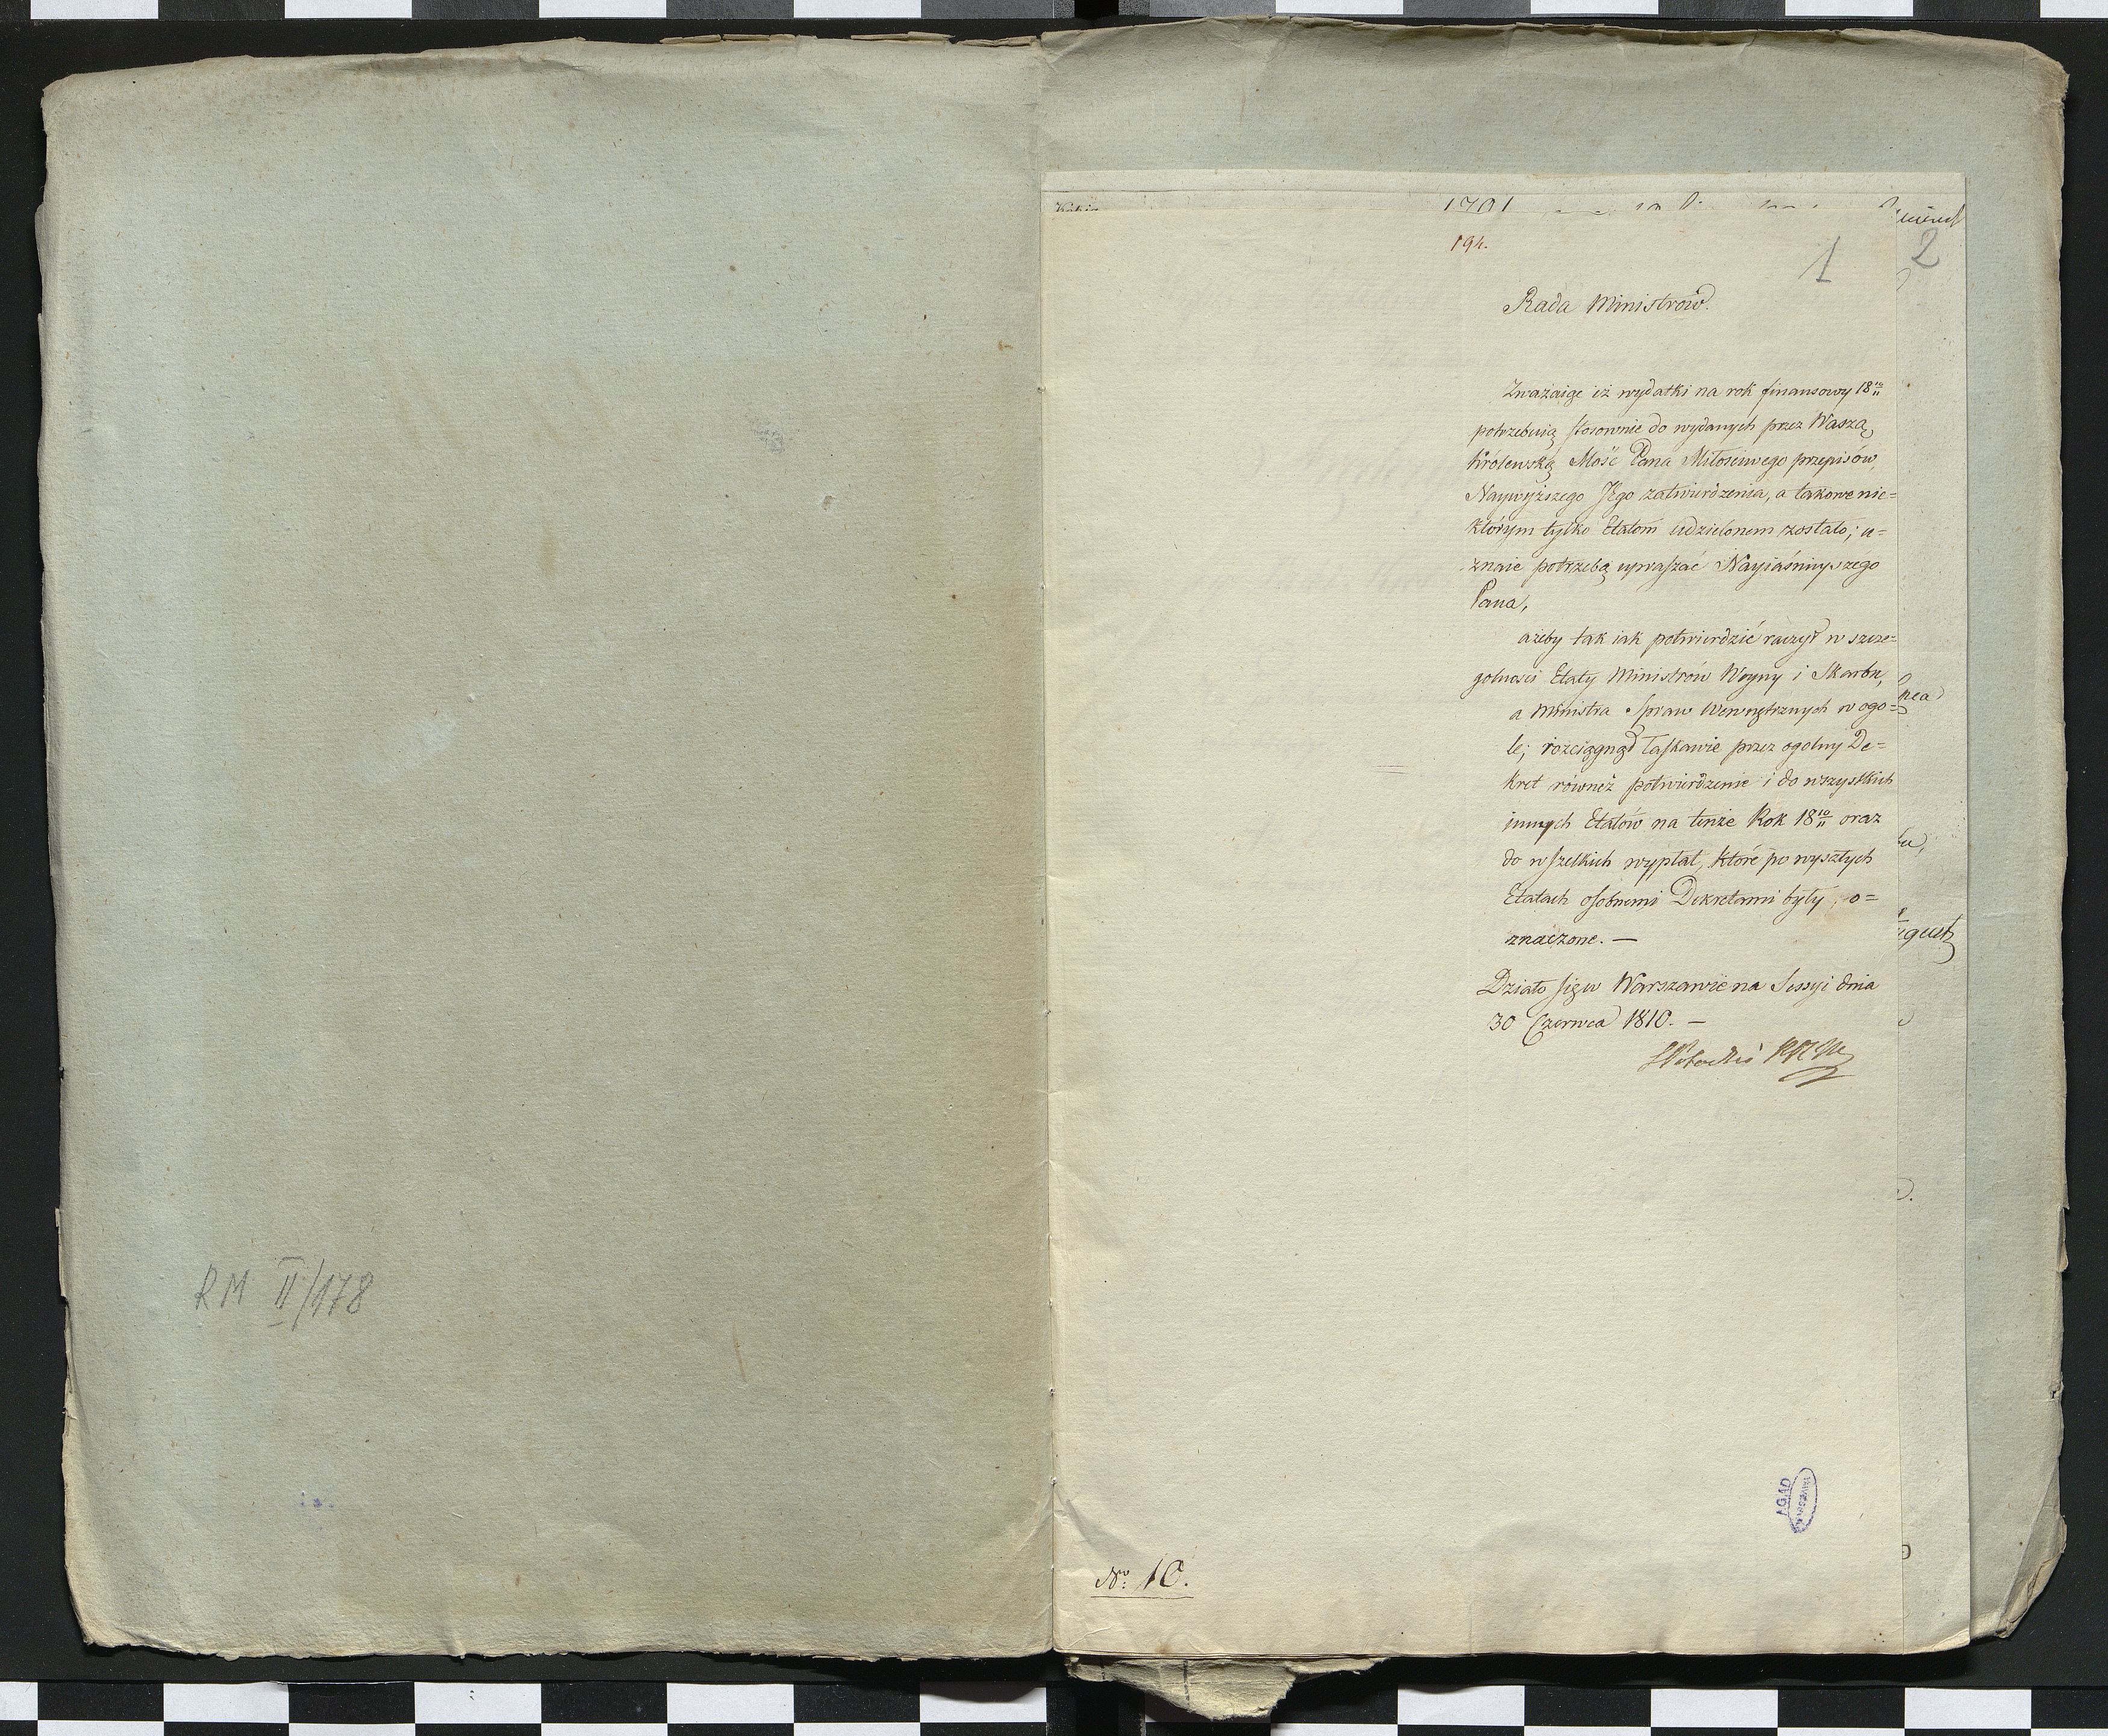 RM II/178
194.
1
2
Rada Ministrow.
Zważaiąc iż wydatki na rok finansowy 18 10/11
potrzebuią stosownie do wydanych przez Waszą
Królewską Mość Pana Miłościwego przepisów,
Naywyższego Jego zatwierdzenia, a takowe nie=
którym tylko Etatom udzielonem zostało; u=
znaie potrzebą upraszać Nayiaśnieyszego
Pana,
ażeby tak iak potwierdzić raczył w szcze=
golności Etaty Ministrów Woyny i Skarbu,
a Ministra Spraw Wewnętrznych w ogo=
le; rozciągnął łaskawie przez ogolny De=
kret równeż potwierdzenie i do wszystkich
innych Etatów na tenże Rok 18 10/11 oraz
do wszelkich wypłat, które po wyszłych
Etatach osobnemi Dekretami były o=
znaczone. —
Działo się w Warszawie na Sessyi dnia
30 Czerwca 1810. —
AGAD
WARSZAWA
No: 10.